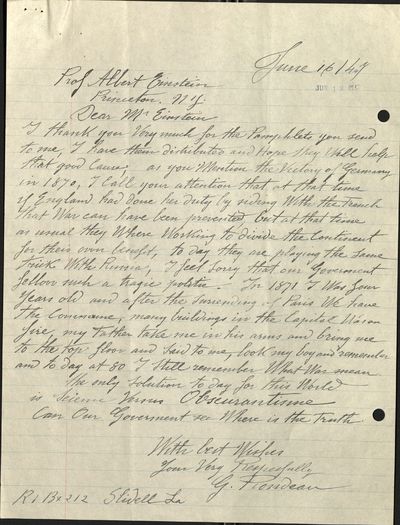 June 16/47
JUN 18 1947
Prof Albert Einstein
Princeton. N J.
Dear Mr Einstein
I thank you Very much for the Pamphlets you send
to me, I have them distributed and Hope they Will help
that good Cause, as you Mention the Victory of Germany
in 1870, I Call your attention that at that time
if England had done her duty by siding With the French
that War can have been prevented but at that time
as usual they Where Working to divide the Continent
for their own benefit, to day they are playing the same
trick With Russia, I feel sorry that our Government
follow such a tragic In 1871 I Was four
years old and after the surrending of Paris We have
the Commune, many buildings in the Capital Was on
fire, my father take me in his arms and bring me
to the top floor and Said to me, look my boy and remember
and to day at 80 I Still remember What War mean
The only solution to day for this World
is Science Versus Obscurantisme
Can Our Goverment see Where is the Truth
With best Wishes
Your Very Respectfully
G.
R.1. Bx 212 Slidell La